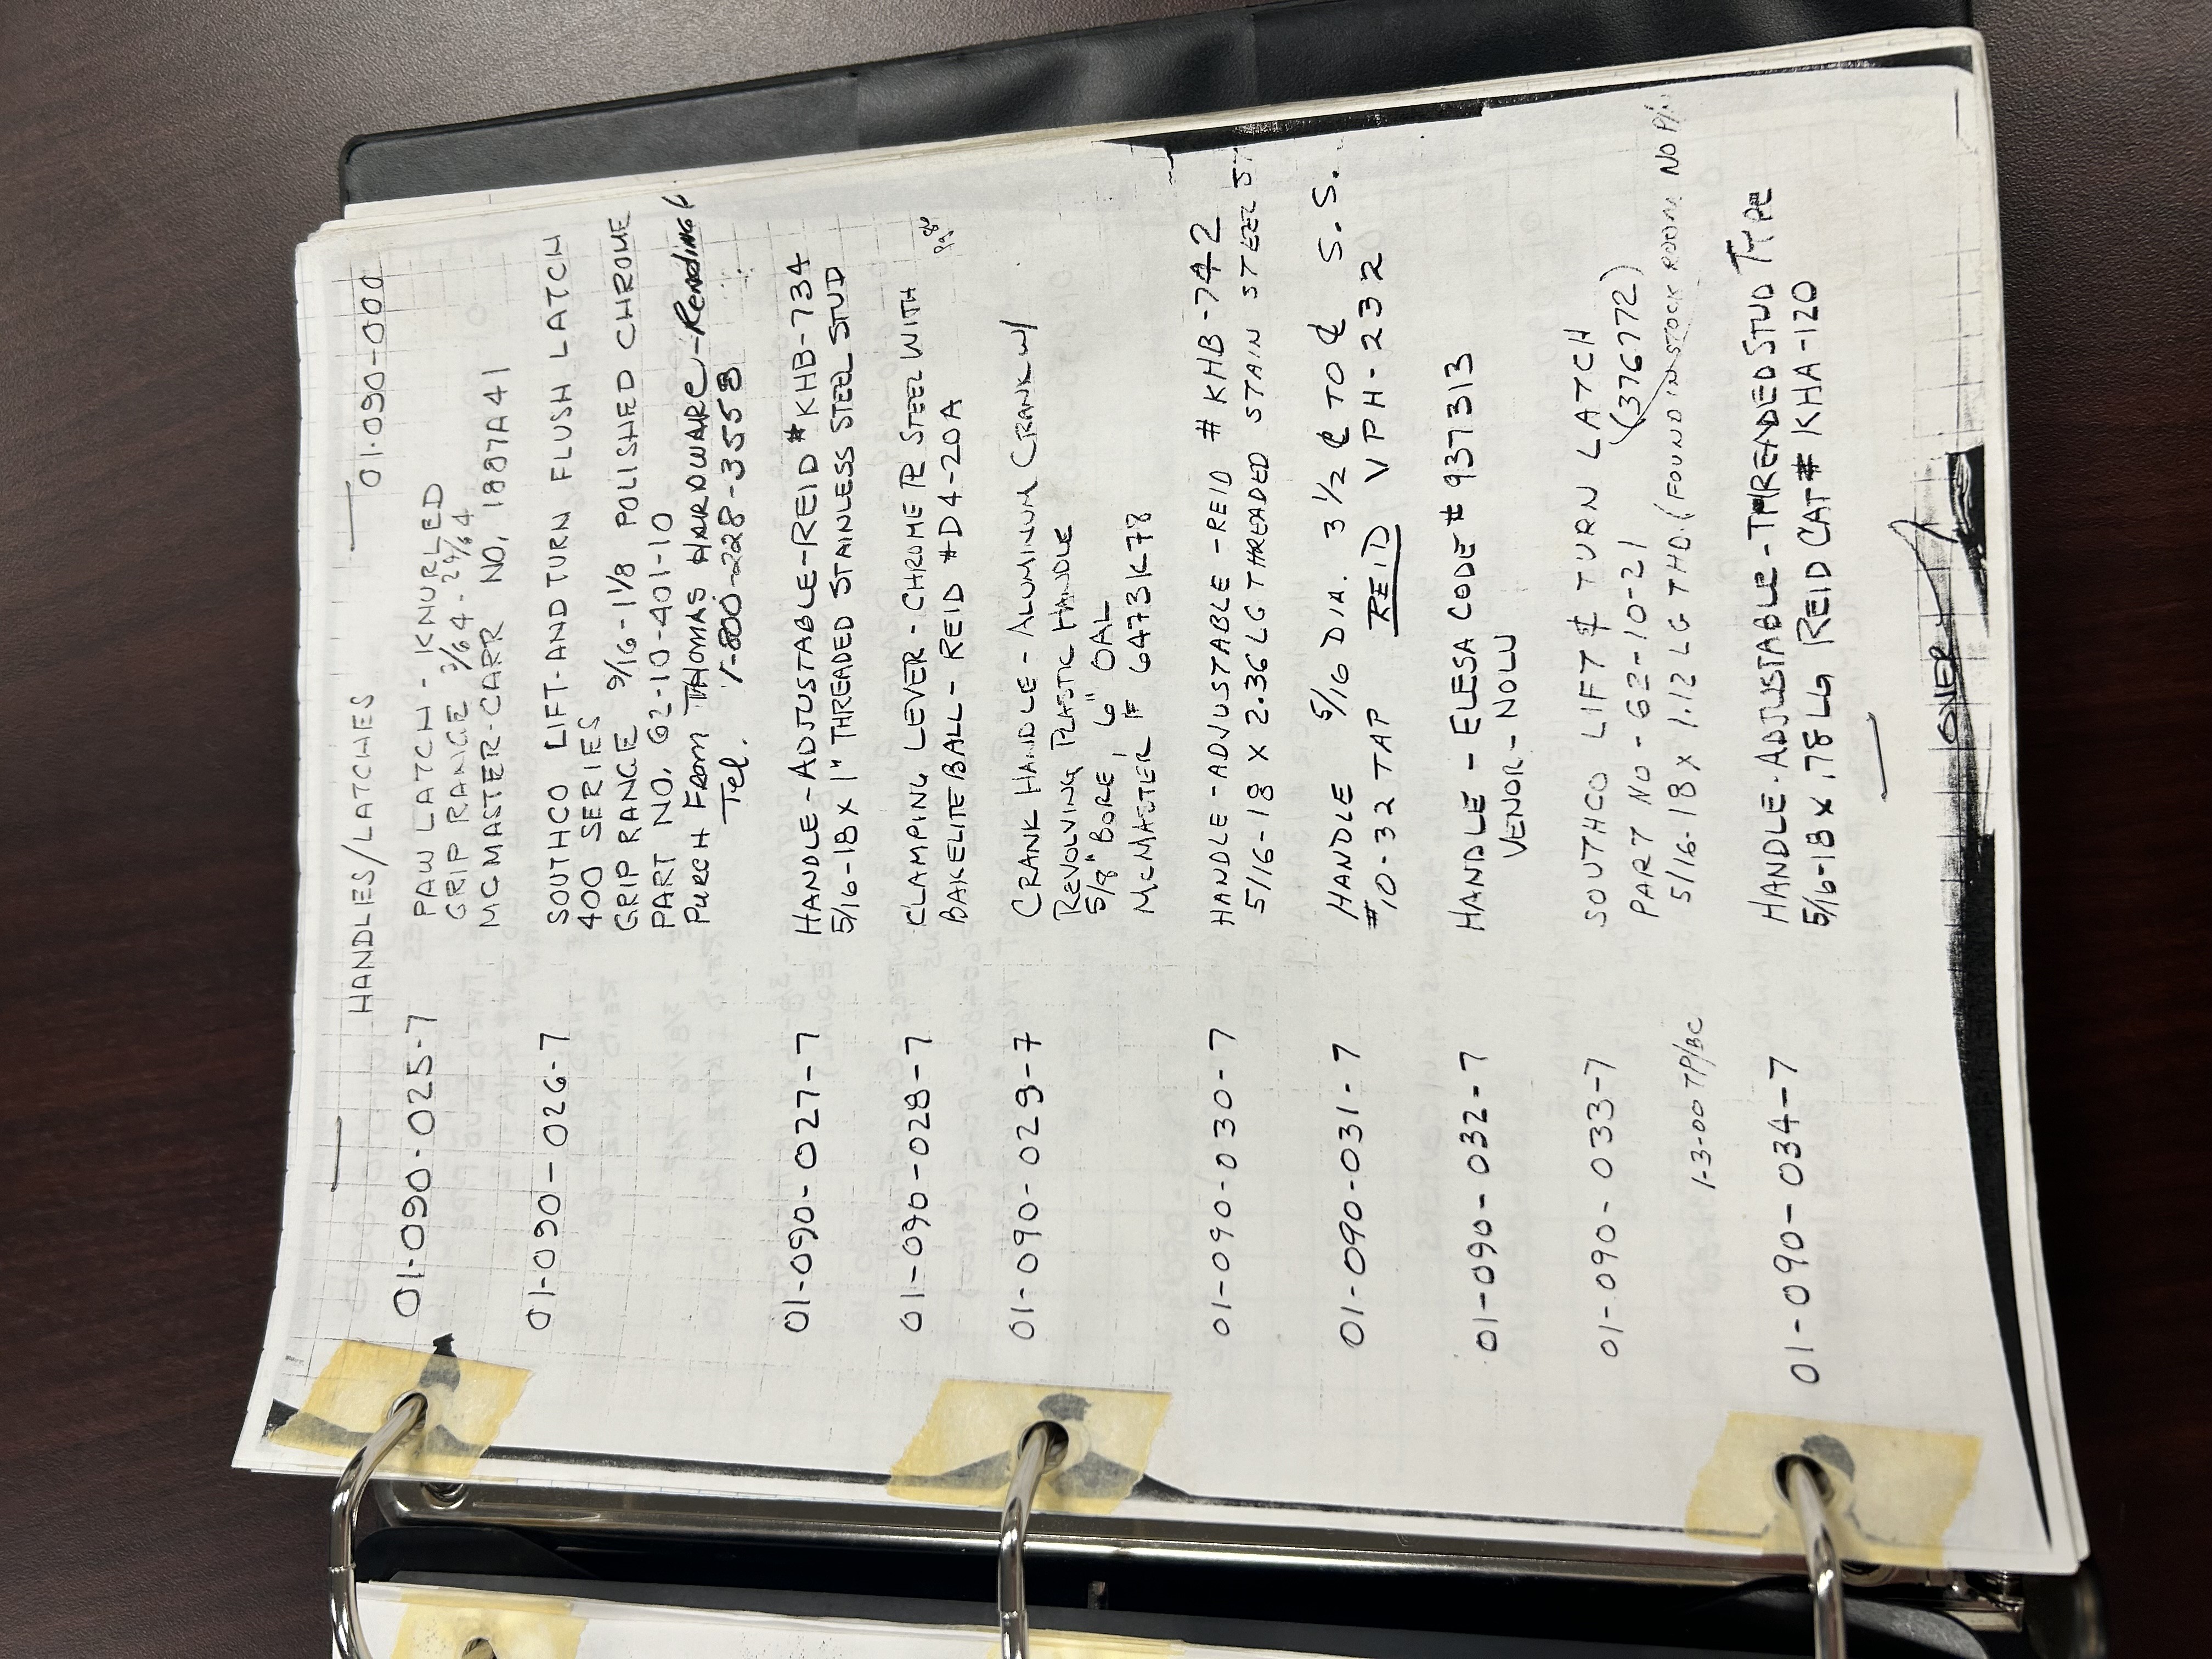 HANDLES/LATCHES 01-090-000
01-090-025-7 PAW LATCH - KNURLED
GRIP RANGE /64 - /64
MCMASTER-CARR NO. 1887A41
01-090-026-7 SOUTHCO LIFT-AND TURN FLUSH LATCH
400 SERIES
GRIP RANGE 9/16 - 1 1/8 POLISHED CHROME
PART NO. 62-10-401-10
PURCH FROM THOMAS HARDWARE - Reading
Tel. 1-800-228-3558
01-090-027-7 HANDLE - ADJUSTABLE - REID # KHB-734
5/16-18 x 1" THREADED STAINLESS STEEL STUD
01-090-028-7 CLAMPING LEVER - CHROME PL STEEL WITH
BAKELITE BALL - REID #D4-20A
Pg 86
01-090-029-7 CRANK HANDLE - ALUMINUM CRANK W/
REVOLVING PLASTIC HANDLE
5/8" BORE, 6" OAL
MCMASTER # 6473K78
01-090-030-7 HANDLE - ADJUSTABLE - REID # KHB-742
5/16-18 X 2.36 LG THREADED STAIN STEEL ST
01-090-031-7 HANDLE 5/16 DIA. 3 1/2 ℄ TO ℄ S.S.
#10-32 TAP REID VPH-232
01-090-032-7 HANDLE - ELESA CODE # 937313
VENOR - NOLU
01-090-033-7 SOUTHCO LIFT & TURN LATCH
PART NO - 62-10-21 (376772)
5/16-18 x 1.12 LG THD. (FOUND IN STOCK ROOM NO P/N
1-3-00 TP/BC
01-090-034-7 HANDLE - ADJUSTABLE - THREADED STUD TYPE
5/16-18 x .78 LG REID CAT # KHA-120
OVER